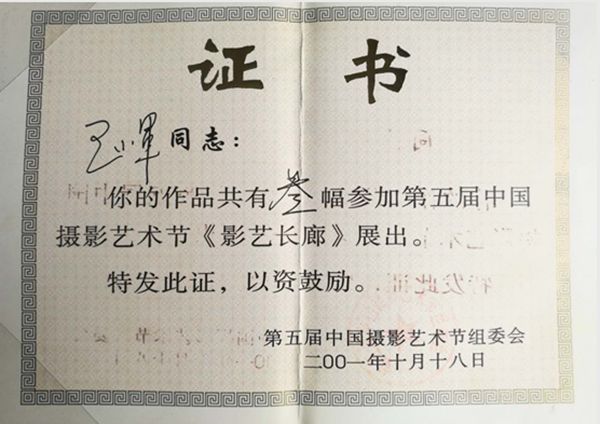 证书
王小军同志：
你的作品共有叁幅参加第五届中国
摄影艺术节《影艺长廊》展出。
特发此证，以资鼓励。
第五届中国摄影艺术节组委会
二00一年十月十八日